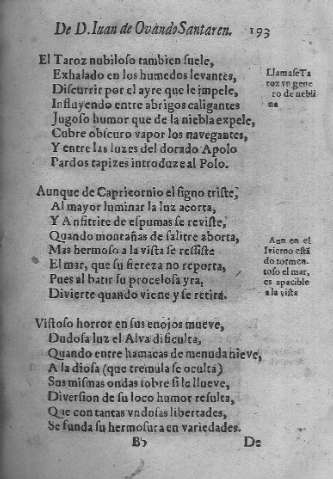 De D. Iuan de Ovando Santaren. 193
El Taroz nubiloso tambien suele,
Exhalado en los humedos levantes,
Discurrir por el ayre que le impele,
Influyendo entre abrigos caligantes
Jugoso humor que de la niebla expele,
Cubre obscuro vapor los navegantes,
Y entre las luzes del dorado Apolo
Pardos tapizes introduze al Polo.
LlamaseTa
roz ve gene
ro de nebli
na
Aunque de Capricornio el signo triste,
Al mayor luminar la luz acorta,
Y Anfitrite de espumas se reviste,
Quando montañas de salitre aborta,
Mas hermoso a la vista se resiste
El mar, que su fiereza no reporta,
Pues al batir su procelosa yra,
Divierte quando viene y se retira.
Aun en el
Ivierno está
do tormen-
toso el mar,
es apacible
a la vista
Vistoso horror en sus enojos mueve,
Dudosa luz el Alva dificulta,
Quando entre hamacas de menuda nieve,
A la diosa (que tremula se oculta)
Sus mismas ondas sobre si lo llueve,
Diversion de su loco humor resulta,
Que con tantas vndosas libertades,
Se funda su hermosura en variedades.
Bb De